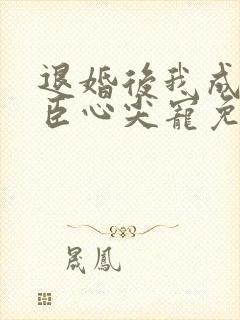 退婚後我成
臣心尖寵免
晟鳳